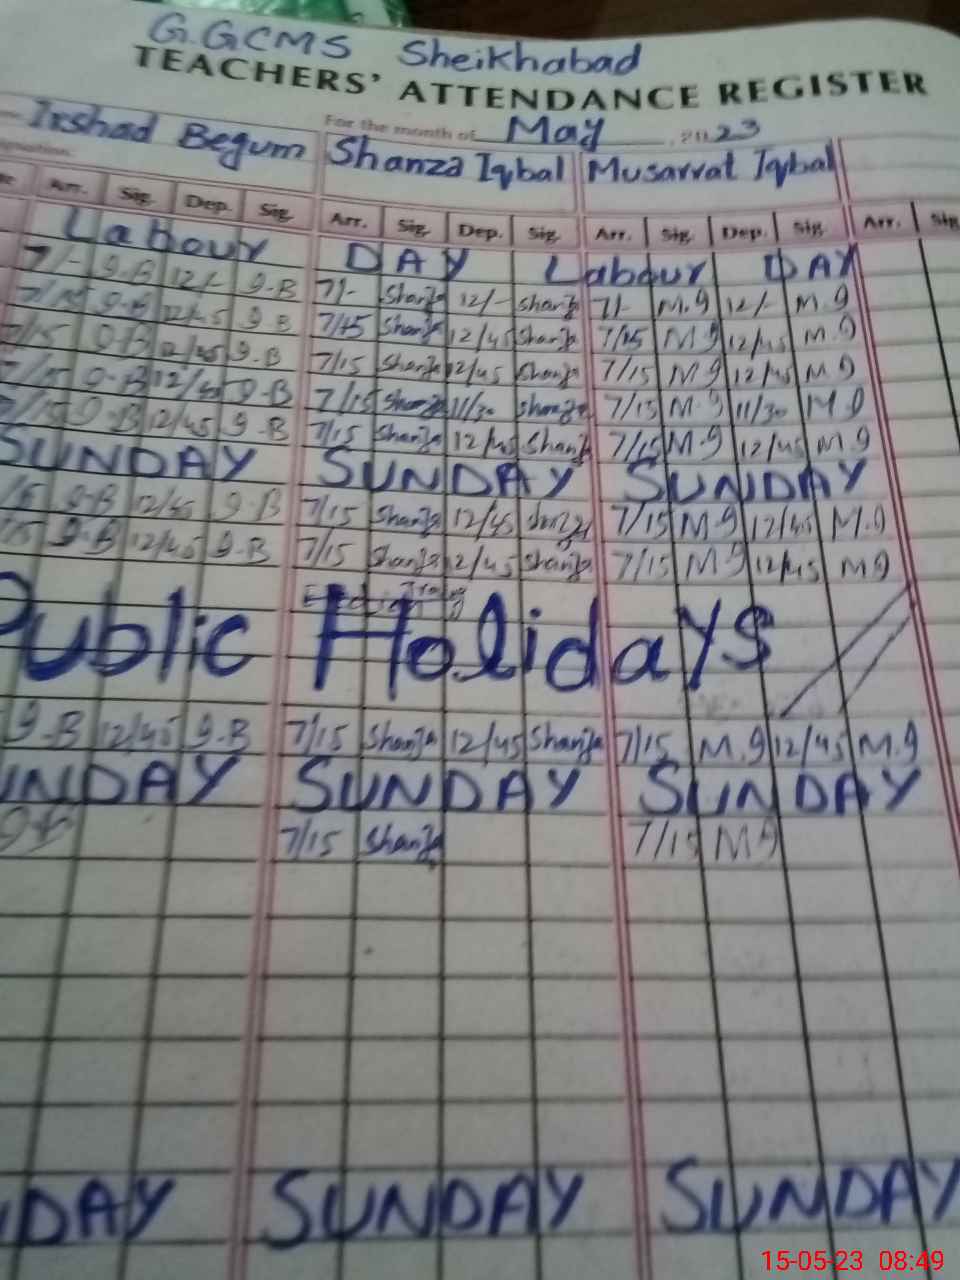 G.GCMS Sheikhabad
TEACHERS' ATTENDANCE REGISTER
For the month of May 2023
Irshad Begum Shanza Iqbal Musarrat Iqbal
Arr. Sig. Dep. Sig. Arr. Sig. Dep. Sig. Arr. Sig. Dep. Sig. Arr. Sig.
Labour DAY Labour DAY
7/- 9-B 12/- 9-B 7/- Shanza 12/- Shanza 7/- M.9 12/- M.9
7/15 9-B 12/45 9-B 7/15 Shanza 12/45 Shanza 7/15 M.9 12/45 M.9
7/15 9-B 12/45 9-B 7/15 Shanza 12/45 Shanza 7/15 M.9 12/45 M.9
7/15 9-B 12/45 9-B 7/15 Shanza 11/30 Shanza 7/15 M.9 11/30 M.9
7/15 9-B 12/45 9-B 7/15 Shanza 12/45 Shanza 7/15 M.9 12/45 M.9
SUNDAY SUNDAY SUNDAY
/15 9-B 12/45 9-B 7/15 Shanza 12/45 7/15 M.9 12/45 M.9
/15 9-B 12/45 9-B 7/15 Shanza 12/45 Shanza 7/15 M9 12/45 M9
Public Holidays
9-B 12/45 9-B 7/15 Shanza 12/45 Shanza 7/15 M.9 12/45 M.9
UNDAY SUNDAY SUNDAY
9-B 7/15 Shanza 7/15 M9
DAY SUNDAY SUNDAY
15-05-23 08:49